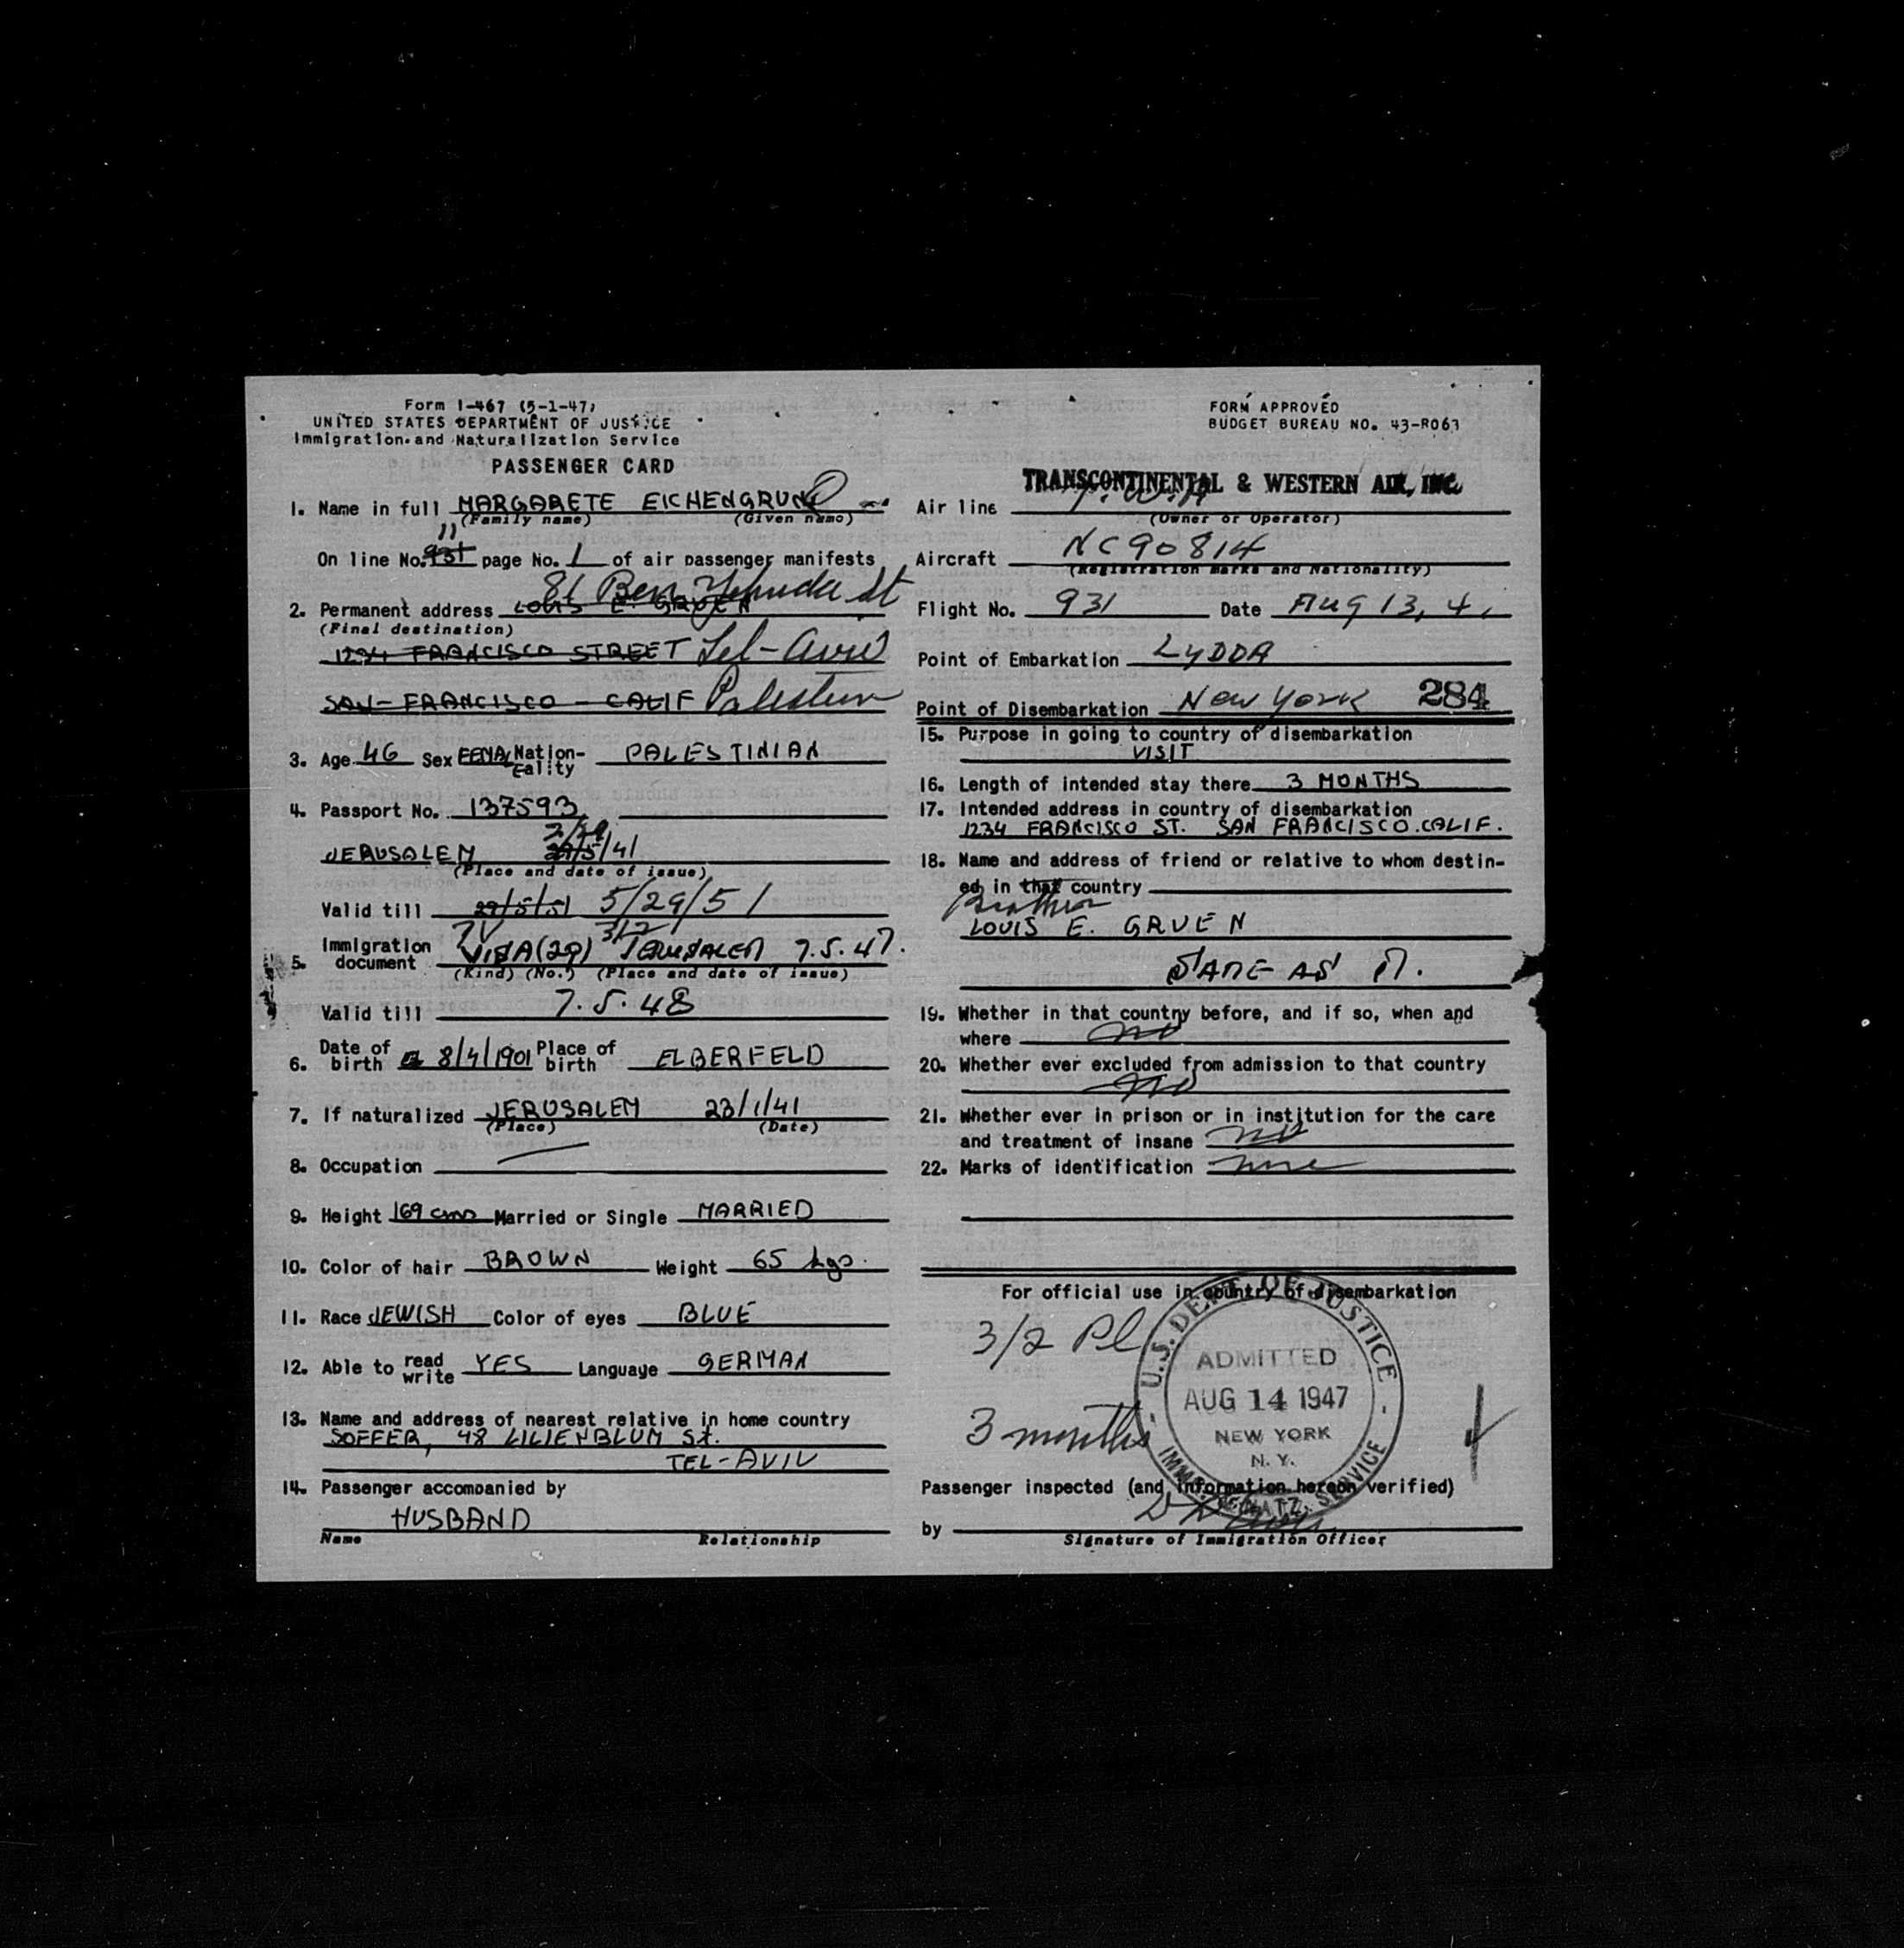 Form I-467 (5-1-47)
UNITED STATES DEPARTMENT OF JUSTICE
Immigration and Naturalization Service
PASSENGER CARD
1. Name in full MARGARETE EICHENGRUN
(Family name) (Given name)
11
On line No. 931 page No. 1 of air passenger manifests
81 Ben Yehuda St
2. Permanent address LOUIS E. GRUEN
(Final destination)
1234 FRANCISCO STREET Tel-Aviv
SAN-FRANCISCO - CALIF Palestine
3. Age 46 Sex FEMALE Nationality PALESTINIAN
4. Passport No. 137593
JERUSALEM 29/5/41
(Place and date of issue)
Valid till 29/5/51 5/29/51
3/2
5. Immigration document VISA (29) JERUSALEM 7.5.47.
(Kind) (No.) (Place and date of issue)
Valid till 7.5.48
6. Date of birth 8/4/1901 Place of birth ELBERFELD
7. If naturalized JERUSALEM 23/1/41
(Place) (Date)
8. Occupation
9. Height 169 cms Married or Single MARRIED
10. Color of hair BROWN Weight 65 kgs.
11. Race JEWISH Color of eyes BLUE
12. Able to read write YES Language GERMAN
13. Name and address of nearest relative in home country
SOFFER, 48 LILIENBLUM St.
TEL-AVIV
14. Passenger accompanied by
HUSBAND
Name Relationship
FORM APPROVED
BUDGET BUREAU NO. 43-R063
TRANSCONTINENTAL & WESTERN AIR, INC.
Air line T.W.A
(Owner or Operator)
Aircraft NC90814
(Registration marks and Nationality)
Flight No. 931 Date Aug 13, 4
Point of Embarkation LYDDA
Point of Disembarkation New York 284
15. Purpose in going to country of disembarkation
VISIT
16. Length of intended stay there 3 MONTHS
17. Intended address in country of disembarkation
1234 FRANCISCO ST. SAN FRANCISCO. CALIF.
18. Name and address of friend or relative to whom destin-
ed in that country
Brother
LOUIS E. GRUEN
SAME AS 17.
19. Whether in that country before, and if so, when and
where no
20. Whether ever excluded from admission to that country
no
21. Whether ever in prison or in institution for the care
and treatment of insane no
22. Marks of identification none
For official use in country of disembarkation
3/2 Pl
3 months
U.S. DEPT. OF JUSTICE
ADMITTED
AUG 14 1947
NEW YORK
N. Y.
IMMIG. & NATZ. SERVICE
Passenger inspected (and information hereon verified)
by
Signature of Immigration Officer